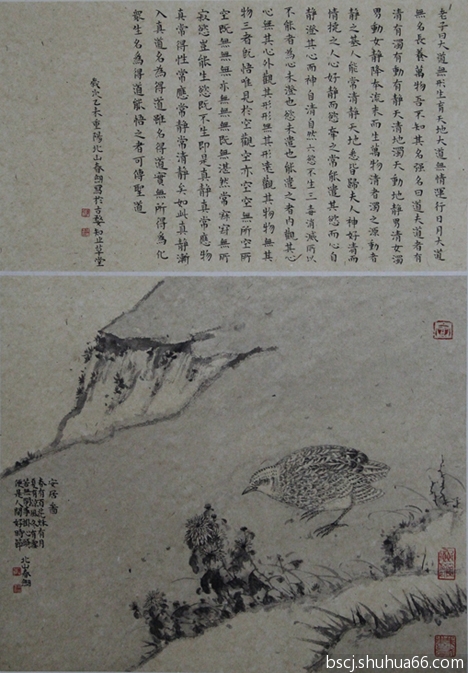 老子曰大道無形生育天地大道無情運行日月大道
無名長養萬物吾不知其名强名曰道夫道者有
清有濁有動有靜天清地濁天動地靜男清女濁
男動女靜降本流末而生萬物清者濁之源動者
靜之基人能常清靜天地悉皆歸夫人神好清而
情擾之人心好靜而慾牽之常能遣其慾而心自
靜澄其心而神自清自然六慾不生三毒消滅所以
不能者為心未澄也慾未遣也能遣之者內觀其心
心無其心外觀其形形無其形遠觀其物物無其
物三者既悟唯見於空觀空亦空空無所空所
空既無無無亦無無無既無湛然常寂寂無所
寂慾豈能生慾既不生即是真靜真常應物
真常得性常應常靜常清靜矣如此真靜漸
入真道名為得道雖名得道實無所得為化
眾生名為得道能悟之者可傳聖道
歲次乙未重陽北山春翎寫於古初止草堂
安居圖
春有百花秋有月
夏有涼風冬有雪
若無閑事掛心頭
便是人間好時節
北山春翎
bscj.shuhua66.com